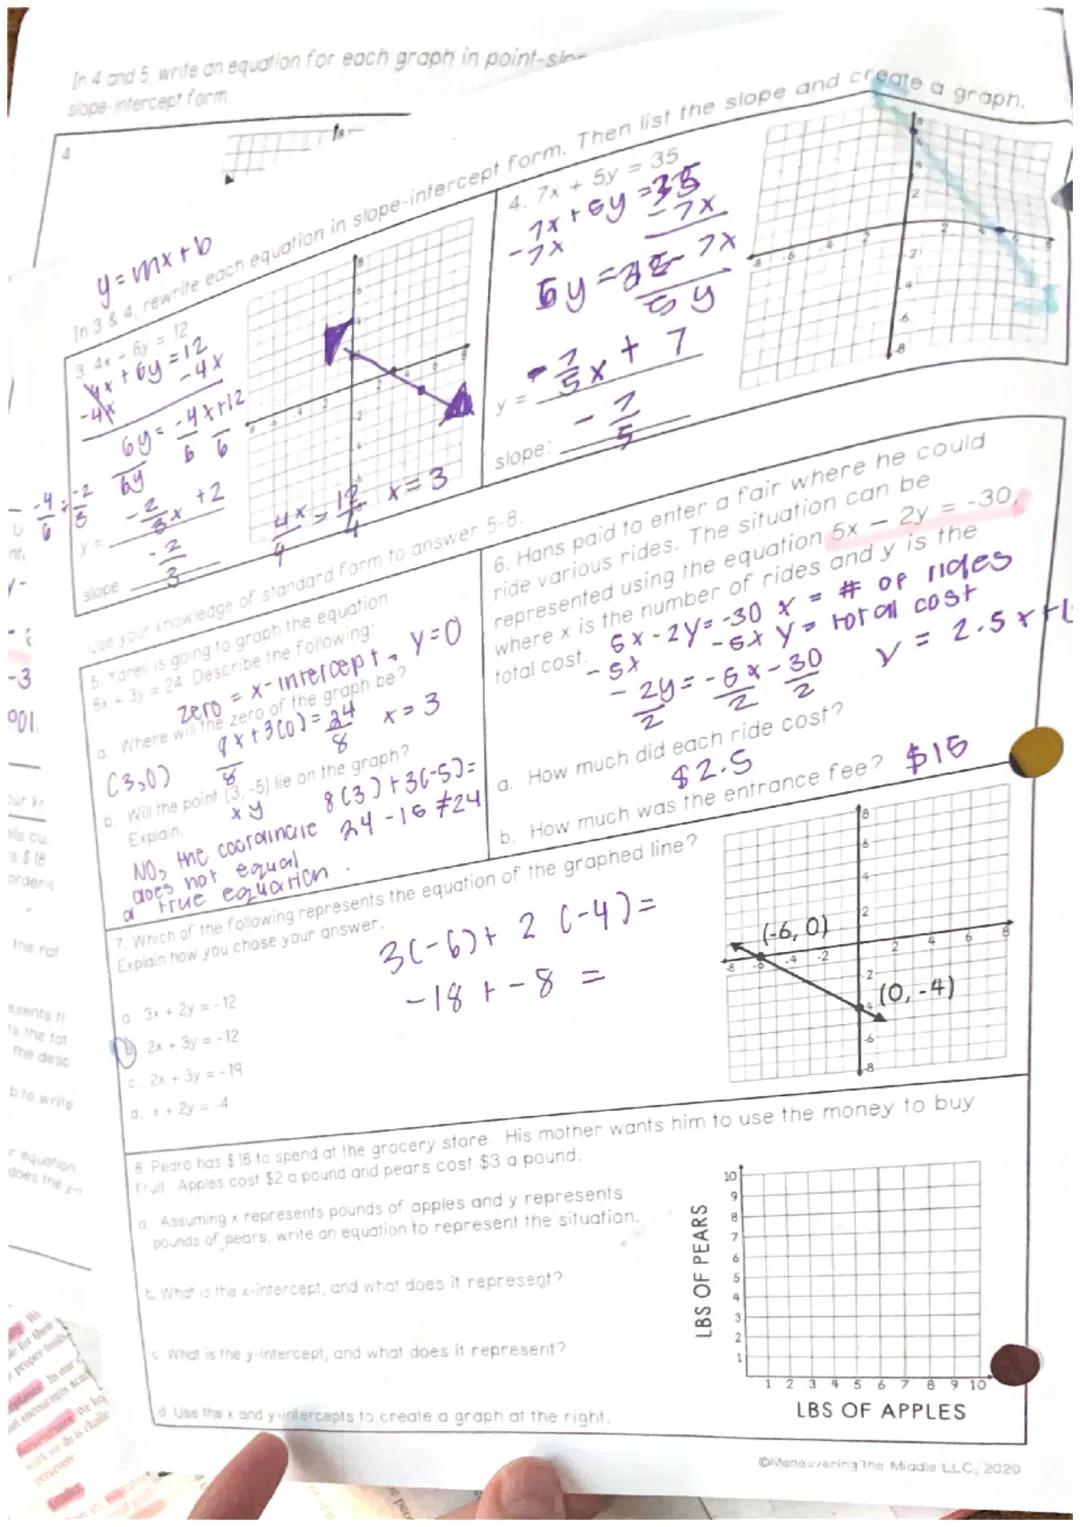 In 4 and 5, write an equation for each graph in
slope-intercept form.
4
y = mx + b
In 3 & 4, rewrite each equation in slope-intercept form. Then list the slope and create a graph.
3. 4x + 6y = 12
4x + 6y = 12
-4x -4x
6y = -4x + 12
6y 6 6
-4/6 ÷ -2/3
y = -2/3x + 2
slope -2/3
4x/4 = 12/4 x = 3
4. 7x + 5y = 35
7x + 5y = 35
-7x -7x
5y = 35 - 7x
5y
y = -7/5x + 7
slope: -7/5
Use your knowledge of standard form to answer 5-8.
5. Yareli is going to graph the equation
8x + 3y = 24. Describe the following:
zero = x-intercept, y=0
a. Where will the zero of the graph be?
8x + 3(0) = 24 x = 3
8 8
(3,0)
b. Will the point (3, -5) lie on the graph?
x y
Explain.
8(3) + 3(-5) =
24 - 15 ≠ 24
NO, the coordinate
does not equal
a true equation.
6. Hans paid to enter a fair where he could
ride various rides. The situation can be
represented using the equation 5x – 2y = -30,
where x is the number of rides and y is the
total cost.
5x - 2y = -30 x = # of rides
-5x -5x y = total cost
-2y = -5x - 30
2 2 2
y = 2.5x +
a. How much did each ride cost?
$2.5
b. How much was the entrance fee? $15
7. Which of the following represents the equation of the graphed line?
Explain how you chose your answer.
3(-6) + 2(-4) =
-18 + -8 =
a. 3x + 2y = -12
b 2x + 3y = -12
c. 2x + 3y = -19
d. x + 2y = -4
(-6, 0)
(0, -4)
8. Pedro has $18 to spend at the grocery store. His mother wants him to use the money to buy
fruit. Apples cost $2 a pound and pears cost $3 a pound.
a. Assuming x represents pounds of apples and y represents
pounds of pears, write an equation to represent the situation.
b. What is the x-intercept, and what does it represent?
c. What is the y-intercept, and what does it represent?
d. Use the x and y-intercepts to create a graph at the right.
LBS OF PEARS
10
9
8
7
6
5
4
3
2
1
1 2 3 4 5 6 7 8 9 10
LBS OF APPLES
©Maneuvering the Middle LLC, 2020